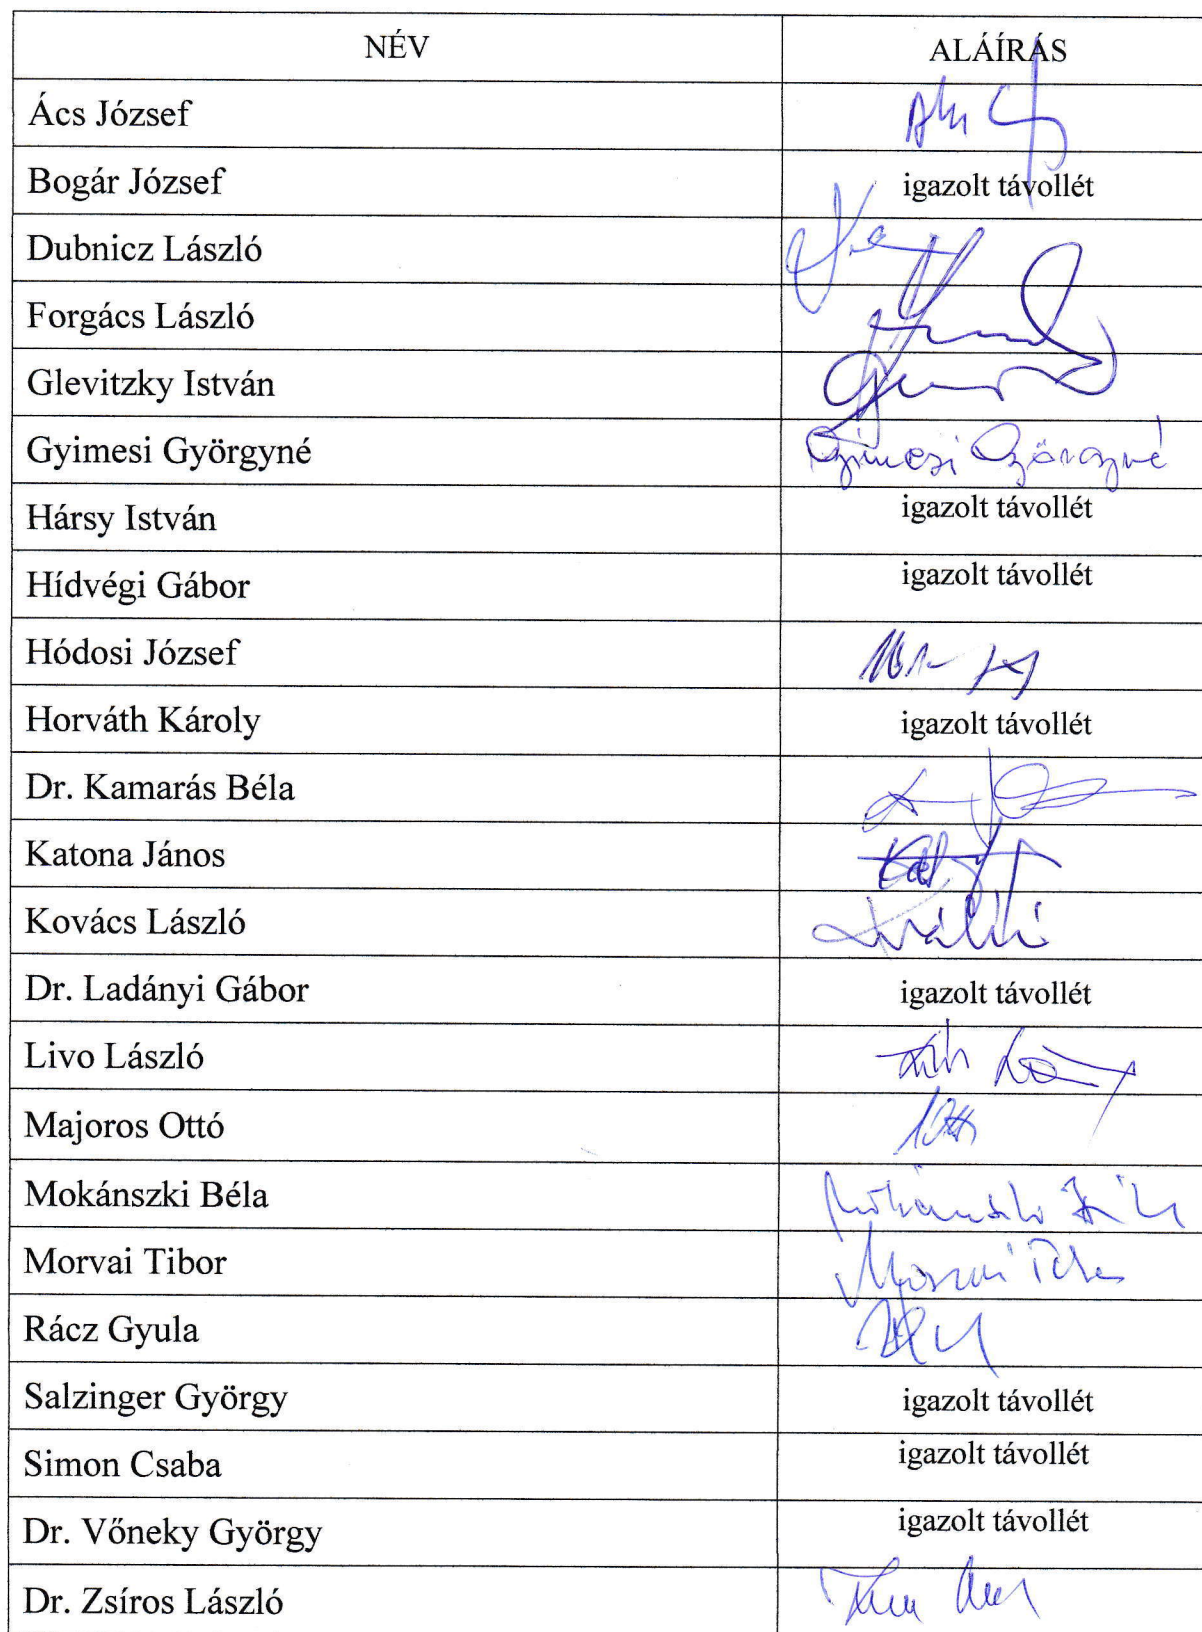 NÉV ALÁÍRÁS
Ács József
Bogár József igazolt távollét
Dubnicz László
Forgács László
Glevitzky István
Gyimesi Györgyné Gyimesi Györgyné
Hársy István igazolt távollét
Hídvégi Gábor igazolt távollét
Hódosi József
Horváth Károly igazolt távollét
Dr. Kamarás Béla
Katona János
Kovács László
Dr. Ladányi Gábor igazolt távollét
Livo László
Majoros Ottó
Mokánszki Béla
Morvai Tibor Morvai Tibor
Rácz Gyula
Salzinger György igazolt távollét
Simon Csaba igazolt távollét
Dr. Vőneky György igazolt távollét
Dr. Zsíros László